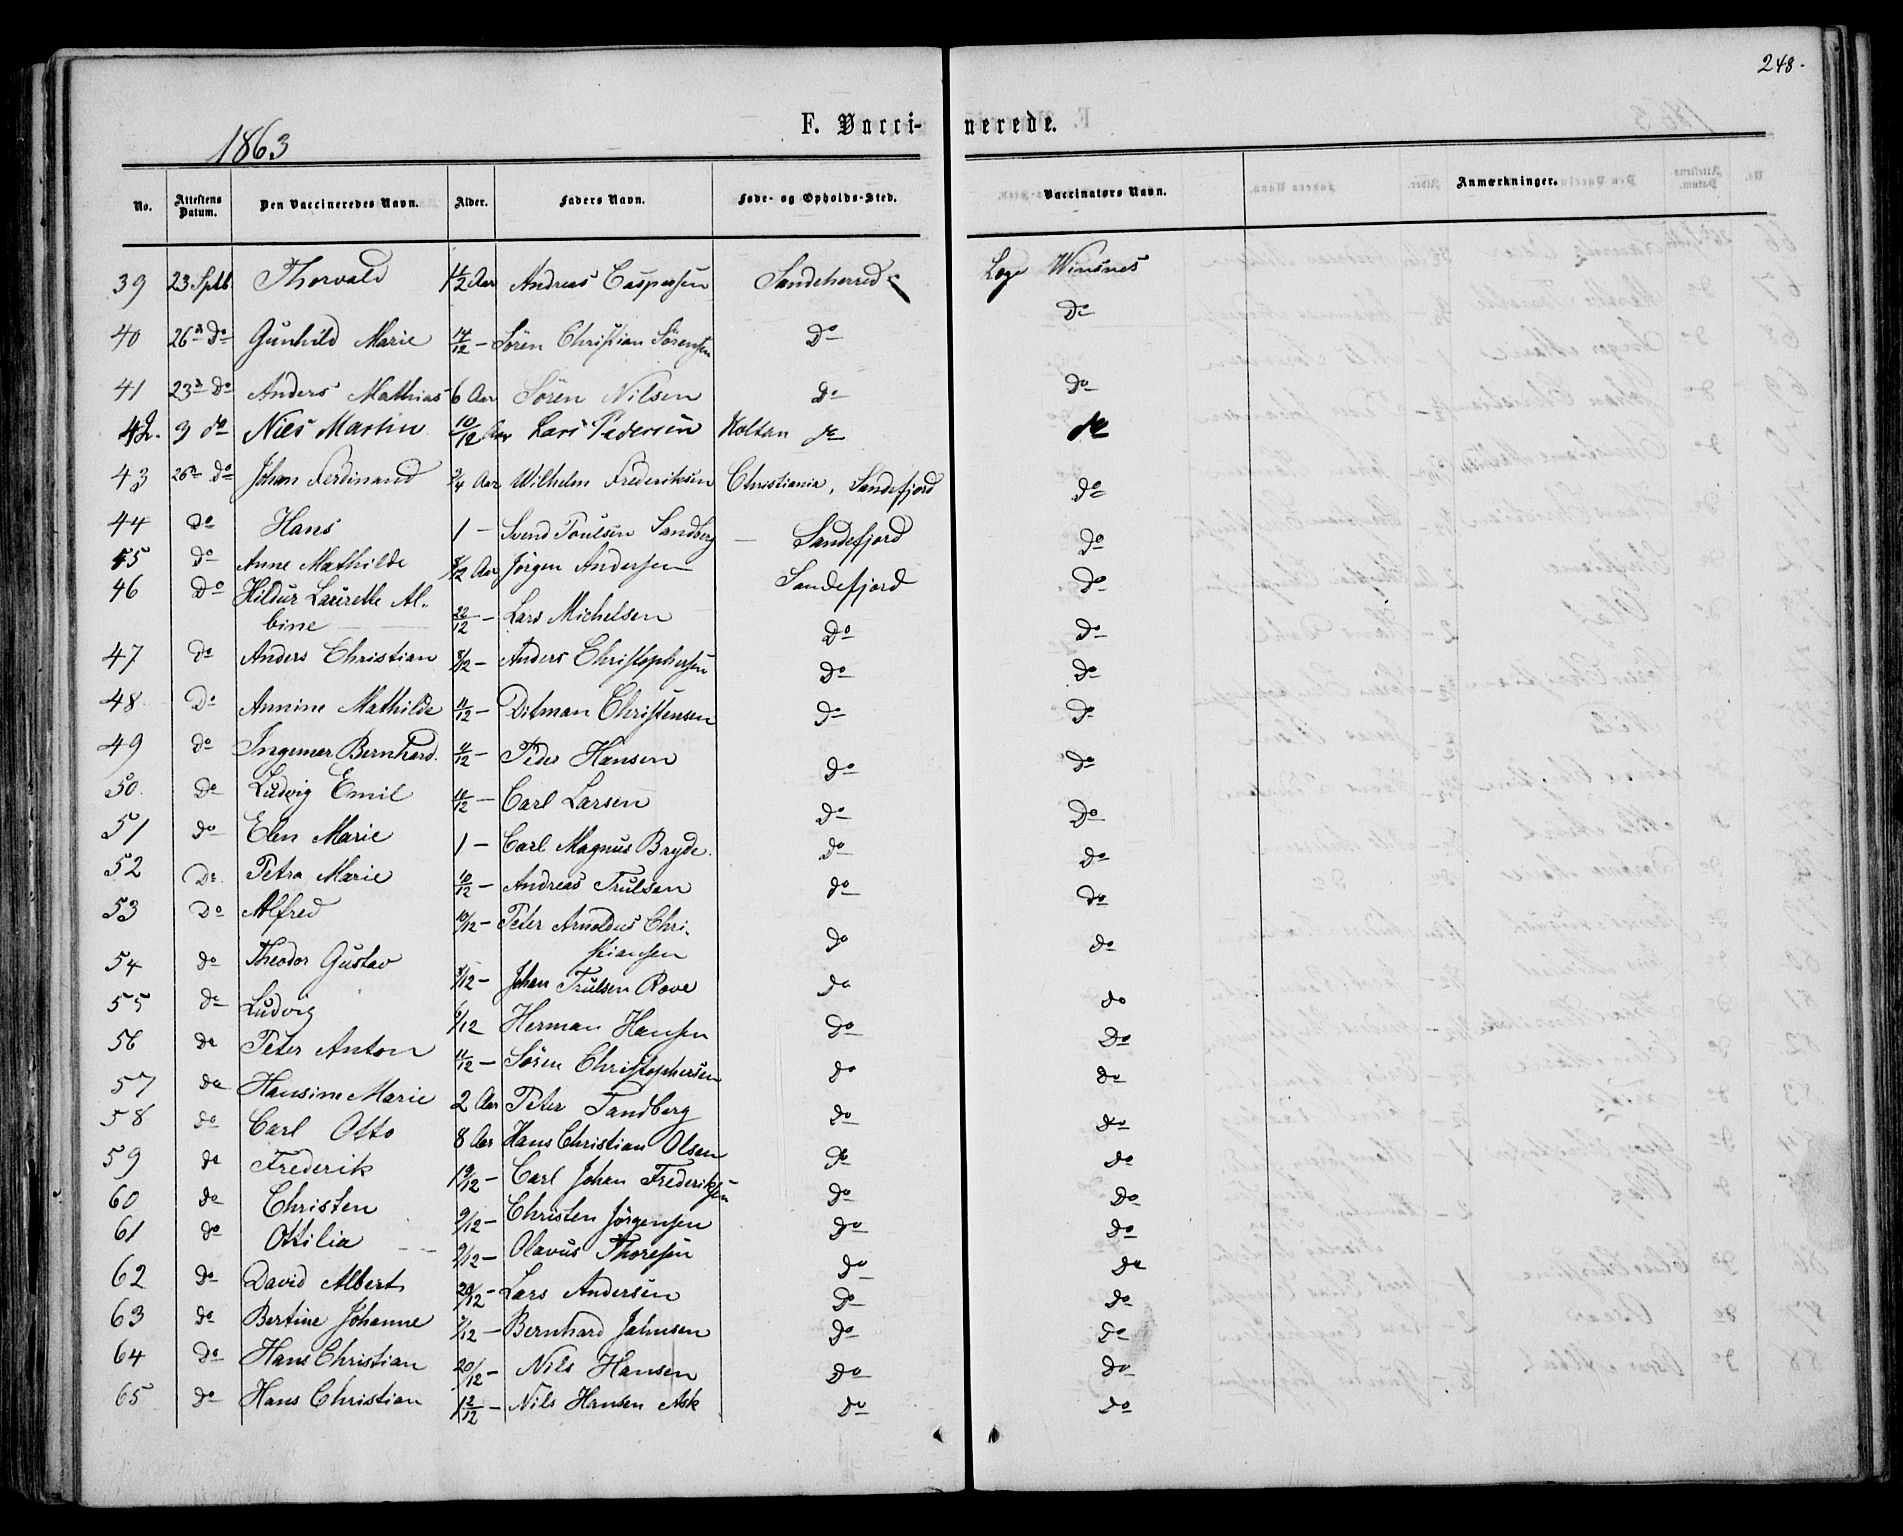 248.
1863
F. Vacci- nerede.
No. Attestens Datum. Den Vaccineredes Navn. Alder. Faders Navn. Føde- og Opholds-Sted. Vaccinators Navn. Anmærkninger.
39 23 Sptb. Thorvald Aar Andreas Caspersen Sandeherred Læge Winsnes
40 26 Do Gunhild Marie 14/12 - Sören Christian Sörensen Do Do
41 23 Do Anders Mathias 6 Aar Sören Nilsen Do Do
42. 3 do Niels Martin 10/12 Aar Lars Pedersen Holtan do do
43 26 Do Johan Ferdinand 3/4 Aar Wilhelm Frederiksen Christiania, Sandefjord Do
44 Do Hans 1 - Svend Poulsen Sandberg - Sandefjord Do
45 Do Anne Mathilde Aar Jörgen Andersen Sandefjord Do
46 Do Hildur Laurette Al-
bine 22/12 - Lars Michelsen Do Do
47 Do Anders Christian 8/12 - Anders Christophersen Do Do
48 Do Annine Mathilde 11/12 - Ditman Christensen Do Do
49 Do Ingemar Bernhard. 11/12 - Peder Hansen Do Do
50. Do Ludvig Emil 10/12 - Carl Larsen Do Do
51 do Elen Marie 1 - Carl Magnus Bryde. Do Do
52 Do Petra Marie 10/12 - Andreas Trulsen Do Do
53 Do Alfred 10/12 - Peter Arnoldus Chri-
stiansen Do Do
54 do Theodor Gustav 8/12 - Johan Trulsen Rove Do Do
55 do Ludvig 6/12 Herman Hansen Do Do
56 do Peter Anton 11/12 - Sören Christophersen Do Do
57 do Hansine Marie 2 Aar Peter Tandberg Do Do
58 do Carl Otto 8 Aar Hans Christian Olsen Do Do
59 do Frederik 19/12 - Carl Johan Frederiksen Do Do
60 do Christen 9/12 - Christen Jörgensen Do Do
61 do Ottilia 9/12 - Olavus Thoresen Do Do
62 do David Albert 20/12 - Lars Andersen Do Do
63 do Bertine Johanne 7/12 - Bernhard Jahnsen Do Do
64 do Hans Christian 20/12 - Nils Hansen Do Do
65 do Hans Christian 12/12 - Nils Hansen Ask Do Do